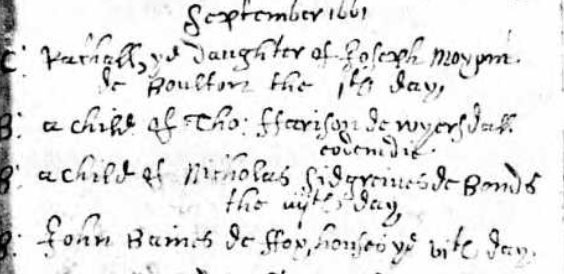 September 1661
C: Rachall, ye Daughter of Joseph
de Boulton the day,
B: a child of Tho: Harison de wyersdall
eodem die.
B: a child of Nicholas Sidgreives de Bonds
the vijth day,
B: John Baines de ffox,houses ye vith day.